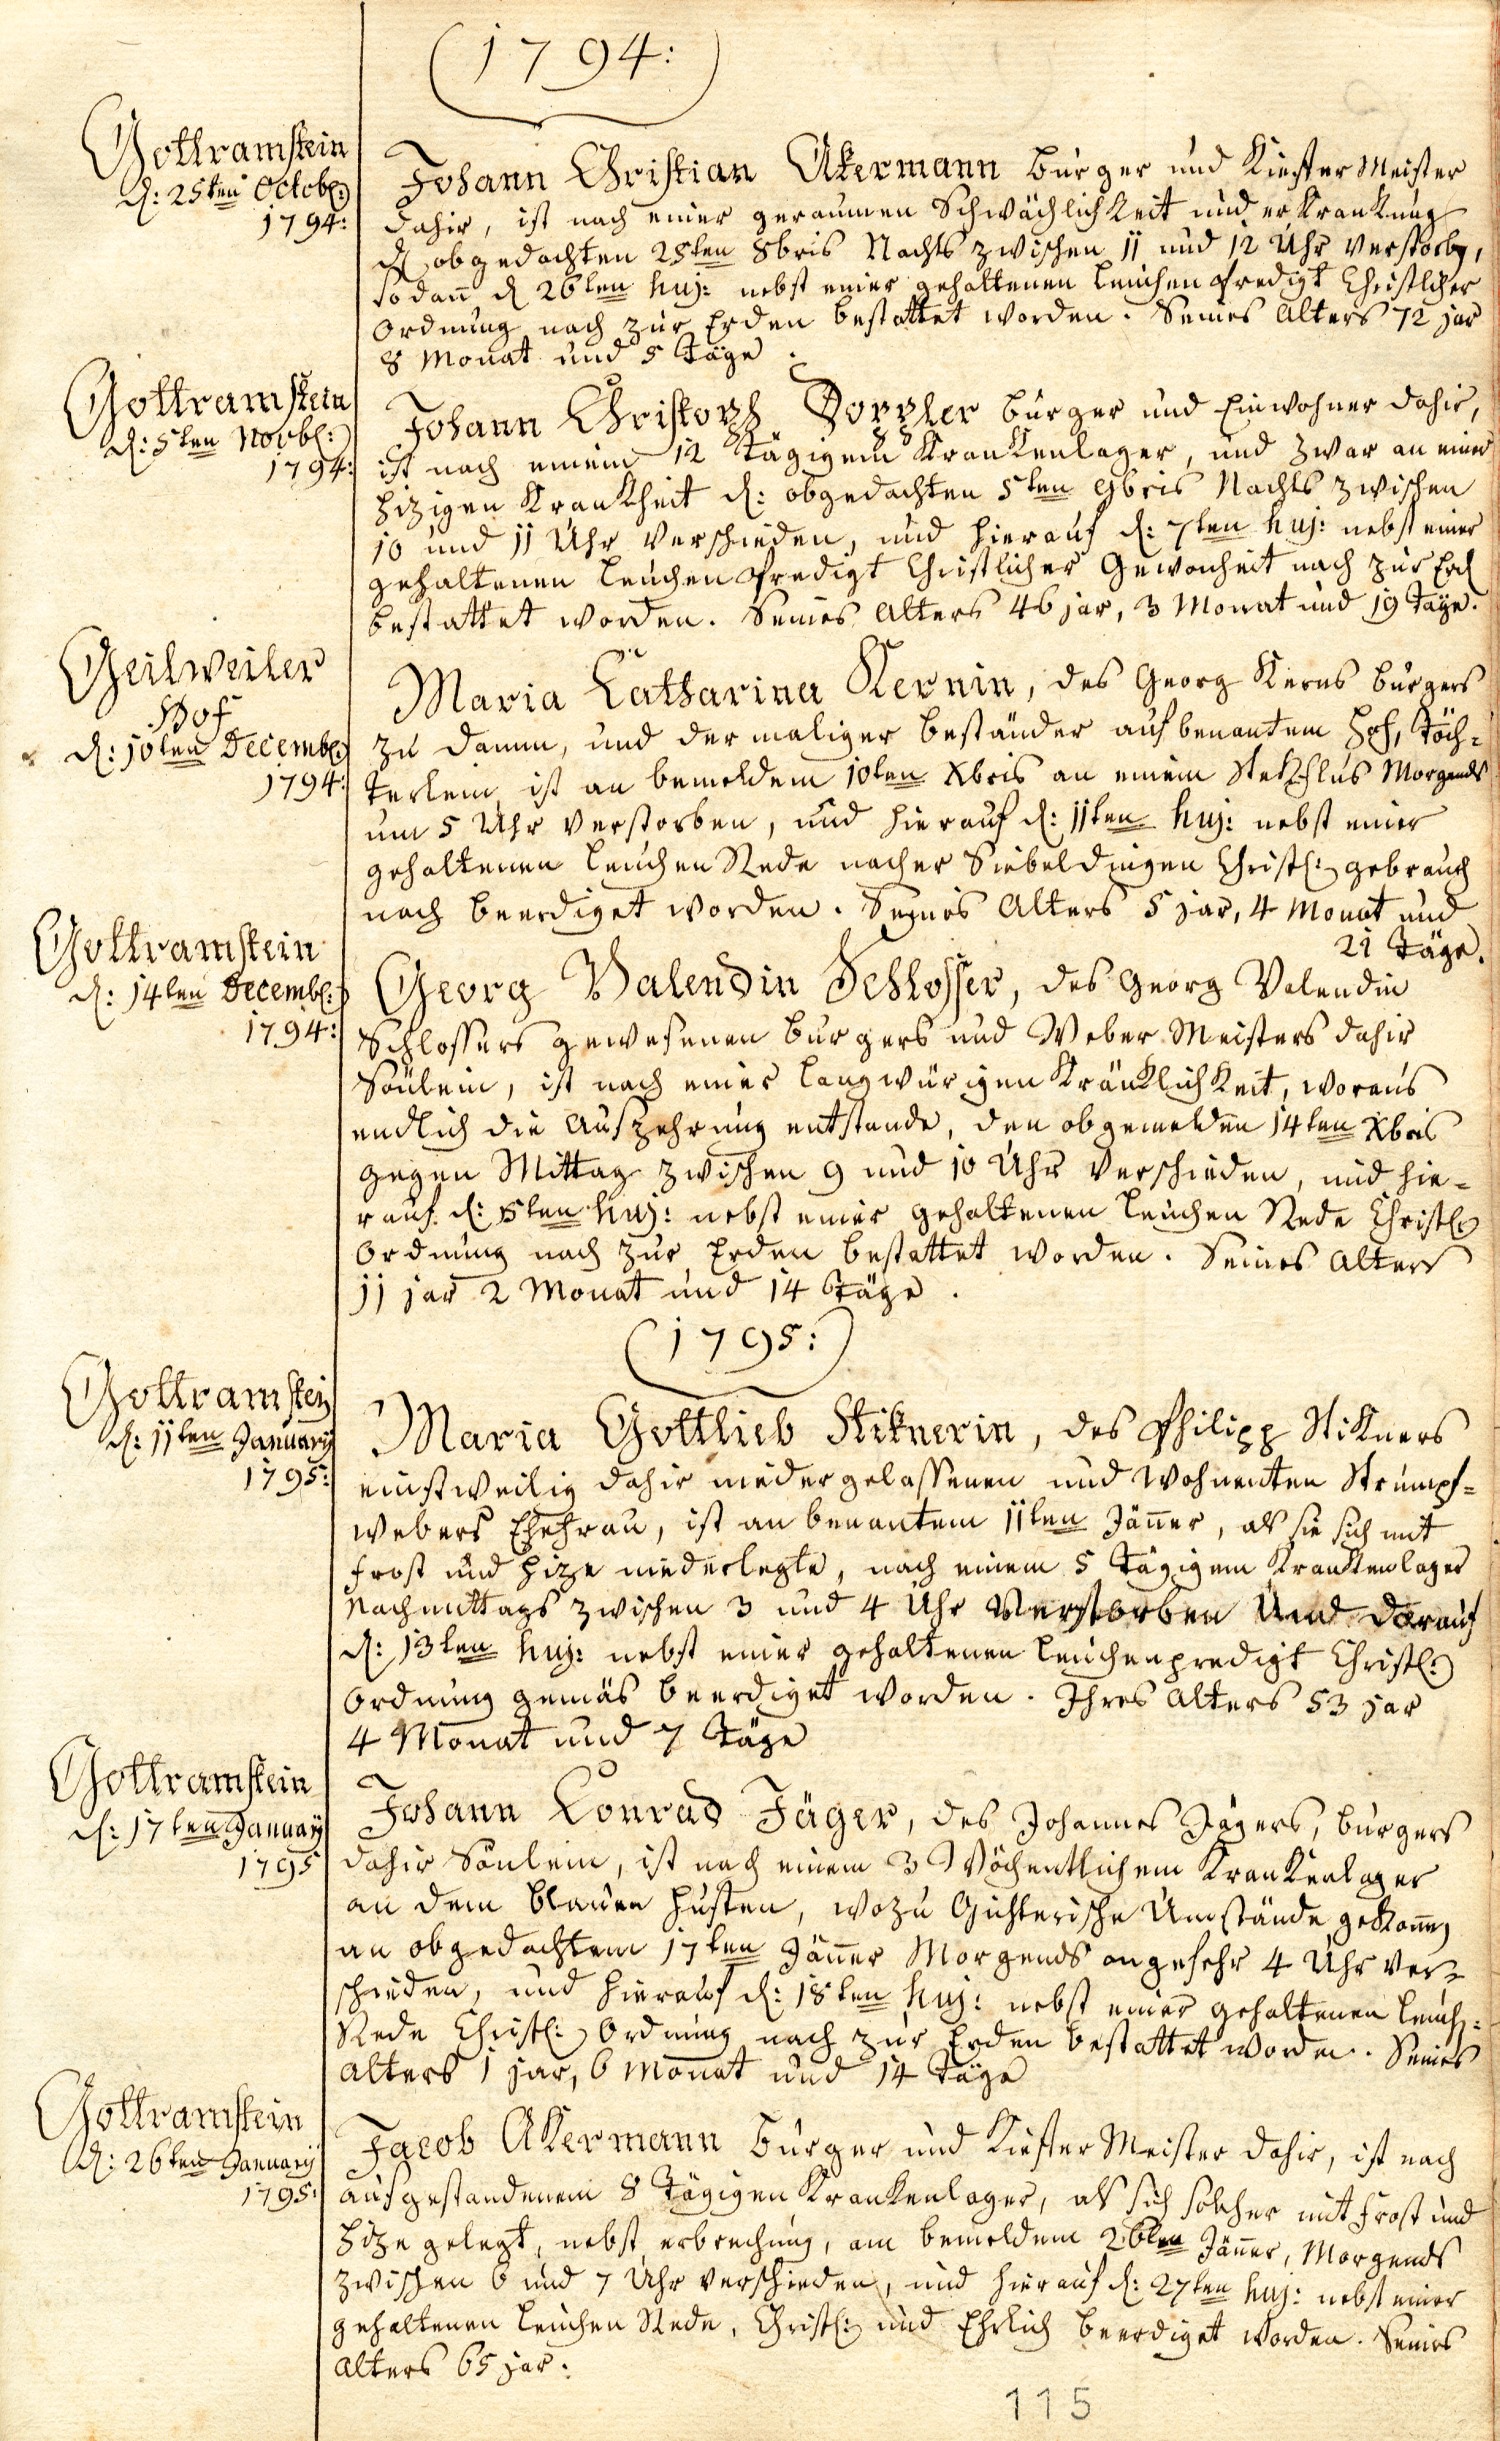 (1794:)
Gottramstein
d: 25ten Octob:
1794:
Johann Christian Akermann Burger und Kieffer Meister
dahir, ist nach einer geraumen Schwächlichkeit und erkrankung
d obgedachten 25ten 8bris Nachts zwischen 11 und 12 Uhr verstorb,
sodan̄ d 26ten huj: nebst einer gehaltenen Leichenpredigt Christlicher
Ordnung nach zur Erden bestattet worden. Seines Alters 72 jar
8 Monat und 5 Täge.
Gottramstein
d: 5ten Novb:
1794:
Johann Christoph Doppler Burger und Einwohner dahir,
ist nach einem 12 Tägigem Krankenlager, und zwar an einer
hizigen Krankheit d: obgedachten 5ten 9bris Nachts zwischen
10 und 11 Uhr verschieden, und hierauf d: 7ten huj: nebst einer
gehaltenen Leichenpredigt Christlicher Gewonheit nach zur Erd
bestattet worden. Seines Alters 46 jar, 3 Monat und 19 Täge.
Geilweiler
Hof
d: 10ten Decemb:
1794:
Maria Catharina Kernin, des Georg Kerns Burgers
zu Damm, und dermaliger beständer auf benantem Hof, Töch-
terlein ist an bemeldem 10ten Xbris an einem Stekflus Morgends
um 5 Uhr verstorben, und hierauf d: 11ten huj: nebst einer
gehaltenen Leichen Rede nacher Siebeldingen Christl: gebrauch
nach beerdiget worden. Seines Alters 5 jar, 4 Monat und
21 Täge.
Gottramstein
d: 14ten Decemb:
1794:
Georg Valendin Schlosser, des Georg Valendin
Schlossers gewesenen Burgers und Weber Meisters dahir
Sönlein, ist nach einer langwürigen Kränklichkeit, woraus
endlich die Auszehrung entstande, den obgemelden 14ten Xbris
gegen Mittag zwischen 9 und 10 Uhr verschieden, und hie-
rauf d: 15ten huj: nebst einer gehaltenen Leichen Rede Christl:
Ordnung nach zur Erden bestattet worden. Seines Alters
11 jar 2 Monat und 14 Täge.
(1795:)
Gottramstein
d: 11ten January
1795:
Maria Gottlieb Stiknerin, des Philipp Stikners
einstweilig dahir niedergelassenen und wohnenten Strumpf-
webers Ehefrau, ist an benantem 11ten Jän̄er, als sie sich mit
frost und hize niederlegte, nach einem 5 Tägigem Krankenlager
Nachmittags zwischen 3 und 4 Uhr verstorben und darauf
d: 13ten huj: nebst einer gehaltenen Leichenpredigt Christl:
Ordnung gemäs beerdiget worden. Ihres Alters 53 jar
4 Monat und 7 Täge
Gottramstein
d: 17ten January
1795
Johann Conrad Jäger, des Johannes Jägers, burgers
dahir Sönlein, ist nach einem 3 Wöchentlichem Krankenlager
an dem blauen Husten, wozu Gichterische Umstände gekom̄en
an obgedachtem 17ten Jän̄er Morgends ongefehr 4 Uhr ver-
schieden, und hierauf d: 18ten huj: nebst einer gehaltenen Leich-
Rede Christl: Ordnung nach zur Erden bestattet worden. Seines
Alters 1 jar, 6 Monat und 14 Täge
Gottramstein
d: 26ten January
1795:
Jacob Akermann Burger und Kieffer Meister dahir, ist nach
ausgestandenem 8 Tägigen Krankenlager, als sich solcher mit frost und
Hize gelegt, nebst erbrechung, am bemeldem 26ten Jän̄er, Morgends
zwischen 6 und 7 Uhr verschieden, und hierauf d: 27ten huj: nebst einer
gehaltenen Leichen Rede, Christl: und Ehrlich beerdiget worden. Seines
Alters 65 jar.
115